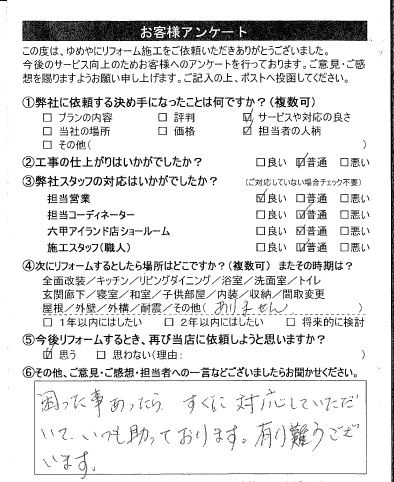 お客様アンケート
この度は、ゆめやにリフォーム施工をご依頼いただきありがとうございました。
今後のサービス向上のためお客様へのアンケートを行っております。ご意見・ご感
想を賜りますようお願い申し上げます。ご記入の上、ポストへ投函してください。
①弊社に依頼する決め手になったことは何ですか？(複数可)
□ プランの内容 □ 評判 ☑ サービスや対応の良さ
□ 当社の場所 □ 価格 ☑ 担当者の人柄
□ その他( )
②工事の仕上がりはいかがでしたか？ □良い ☑普通 □悪い
③弊社スタッフの対応はいかがでしたか？ (ご対応していない場合チェック不要)
担当営業 ☑良い □普通 □悪い
担当コーディネーター □良い ☑普通 □悪い
六甲アイランド店ショールーム □良い ☑普通 □悪い
施工スタッフ(職人) □良い ☑普通 □悪い
④次にリフォームするとしたら場所はどこですか？(複数可) またその時期は？
全面改装／キッチン／リビングダイニング／浴室／洗面室／トイレ
玄関廊下／寝室／和室／子供部屋／内装／収納／間取変更
屋根／外壁／外構／耐震／その他( ありません )
□ 1年以内にはしたい □ 2年以内にはしたい □ 将来的に検討
⑤今後リフォームするとき、再び当店に依頼しようと思いますか？
☑ 思う □ 思わない(理由: )
⑥その他、ご意見・ご感想・担当者への一言などございましたらお聞かせください。
困った事あったら すぐに 対応していただ
いて、いつも助っております。有り難うござ
います。